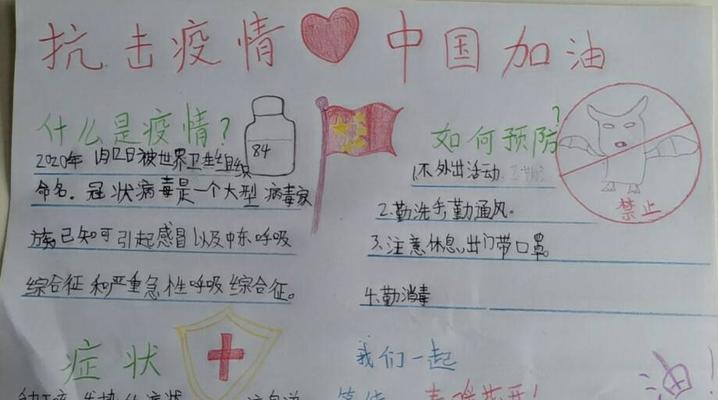 抗击疫情 中国加油
什么是疫情?
84
2020年1月12日被世界卫生组织
命名。冠状病毒是一个大型病毒家
族,已知可引起感冒以及中东呼吸
综合征和严重急性呼吸综合征。
如何预防?
1.不外出活动
2.勤洗手,勤通风。
3.注意休息,出门带口罩。
4.勤消毒
禁止
症状
我们一起
油!